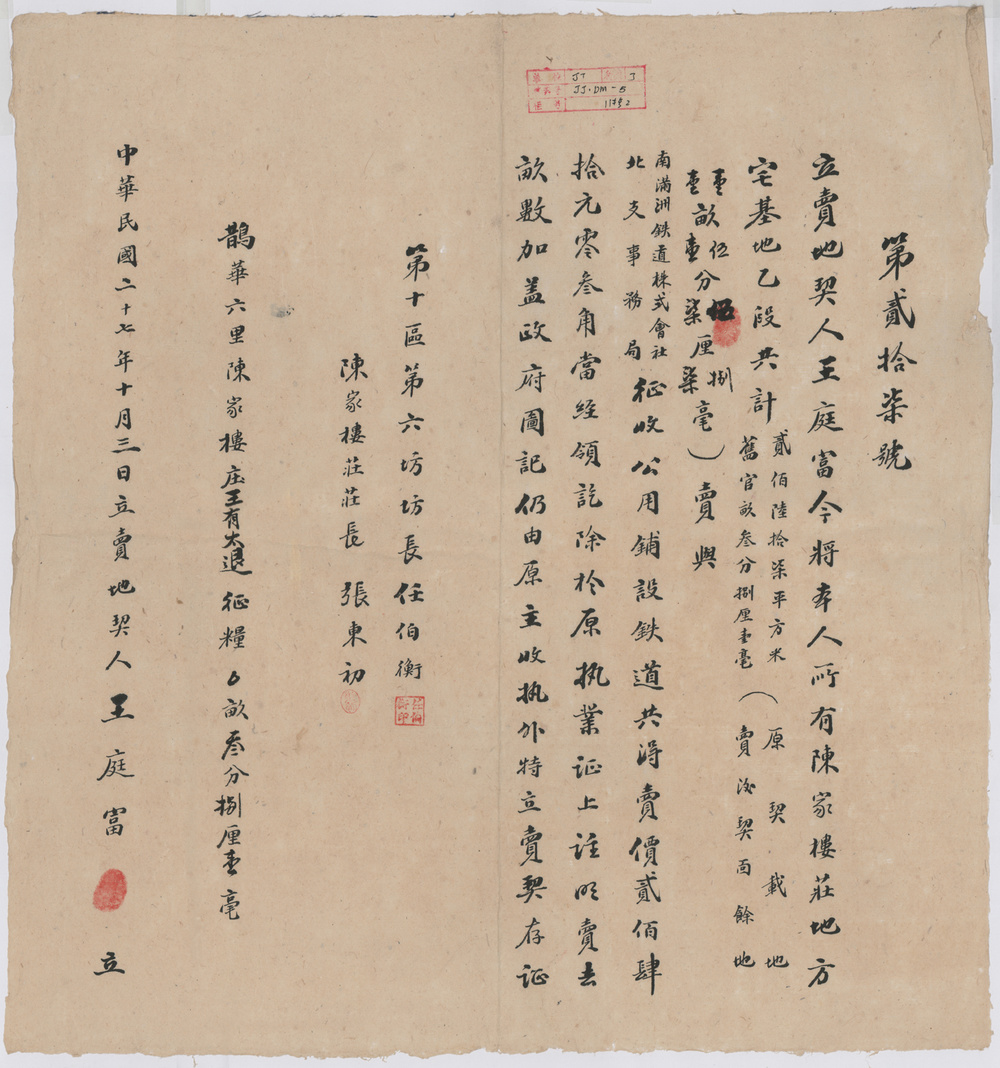 第貳拾柒號
立賣地契人王庭富今將本人所有陳家樓莊地方
宅基地乙段共計
貳佰陸拾柒平方米
舊官畝叁分捌厘壹毫
（原契載地
賣後契面餘地
壹 伍 伍 捌
壹畝壹分柒厘柒毫）賣與
南滿洲鉄道株式會社
北支事務局
征收公用鋪設鉄道共得賣價貳佰肆
拾元零叁角當經領訖除於原执業证上註明賣去
畝數加盖政府圖記仍由原主收执外特立賣契存证
第十區第六坊坊長任伯衡
任伯衡印
陳家樓莊莊長 張東初
鵲華六里陳家樓庄王有太退征糧0畝叁分捌厘壹毫
中華民國二十七年十月三日立賣地契人王庭富 立
JT 3
JJ·DM-5